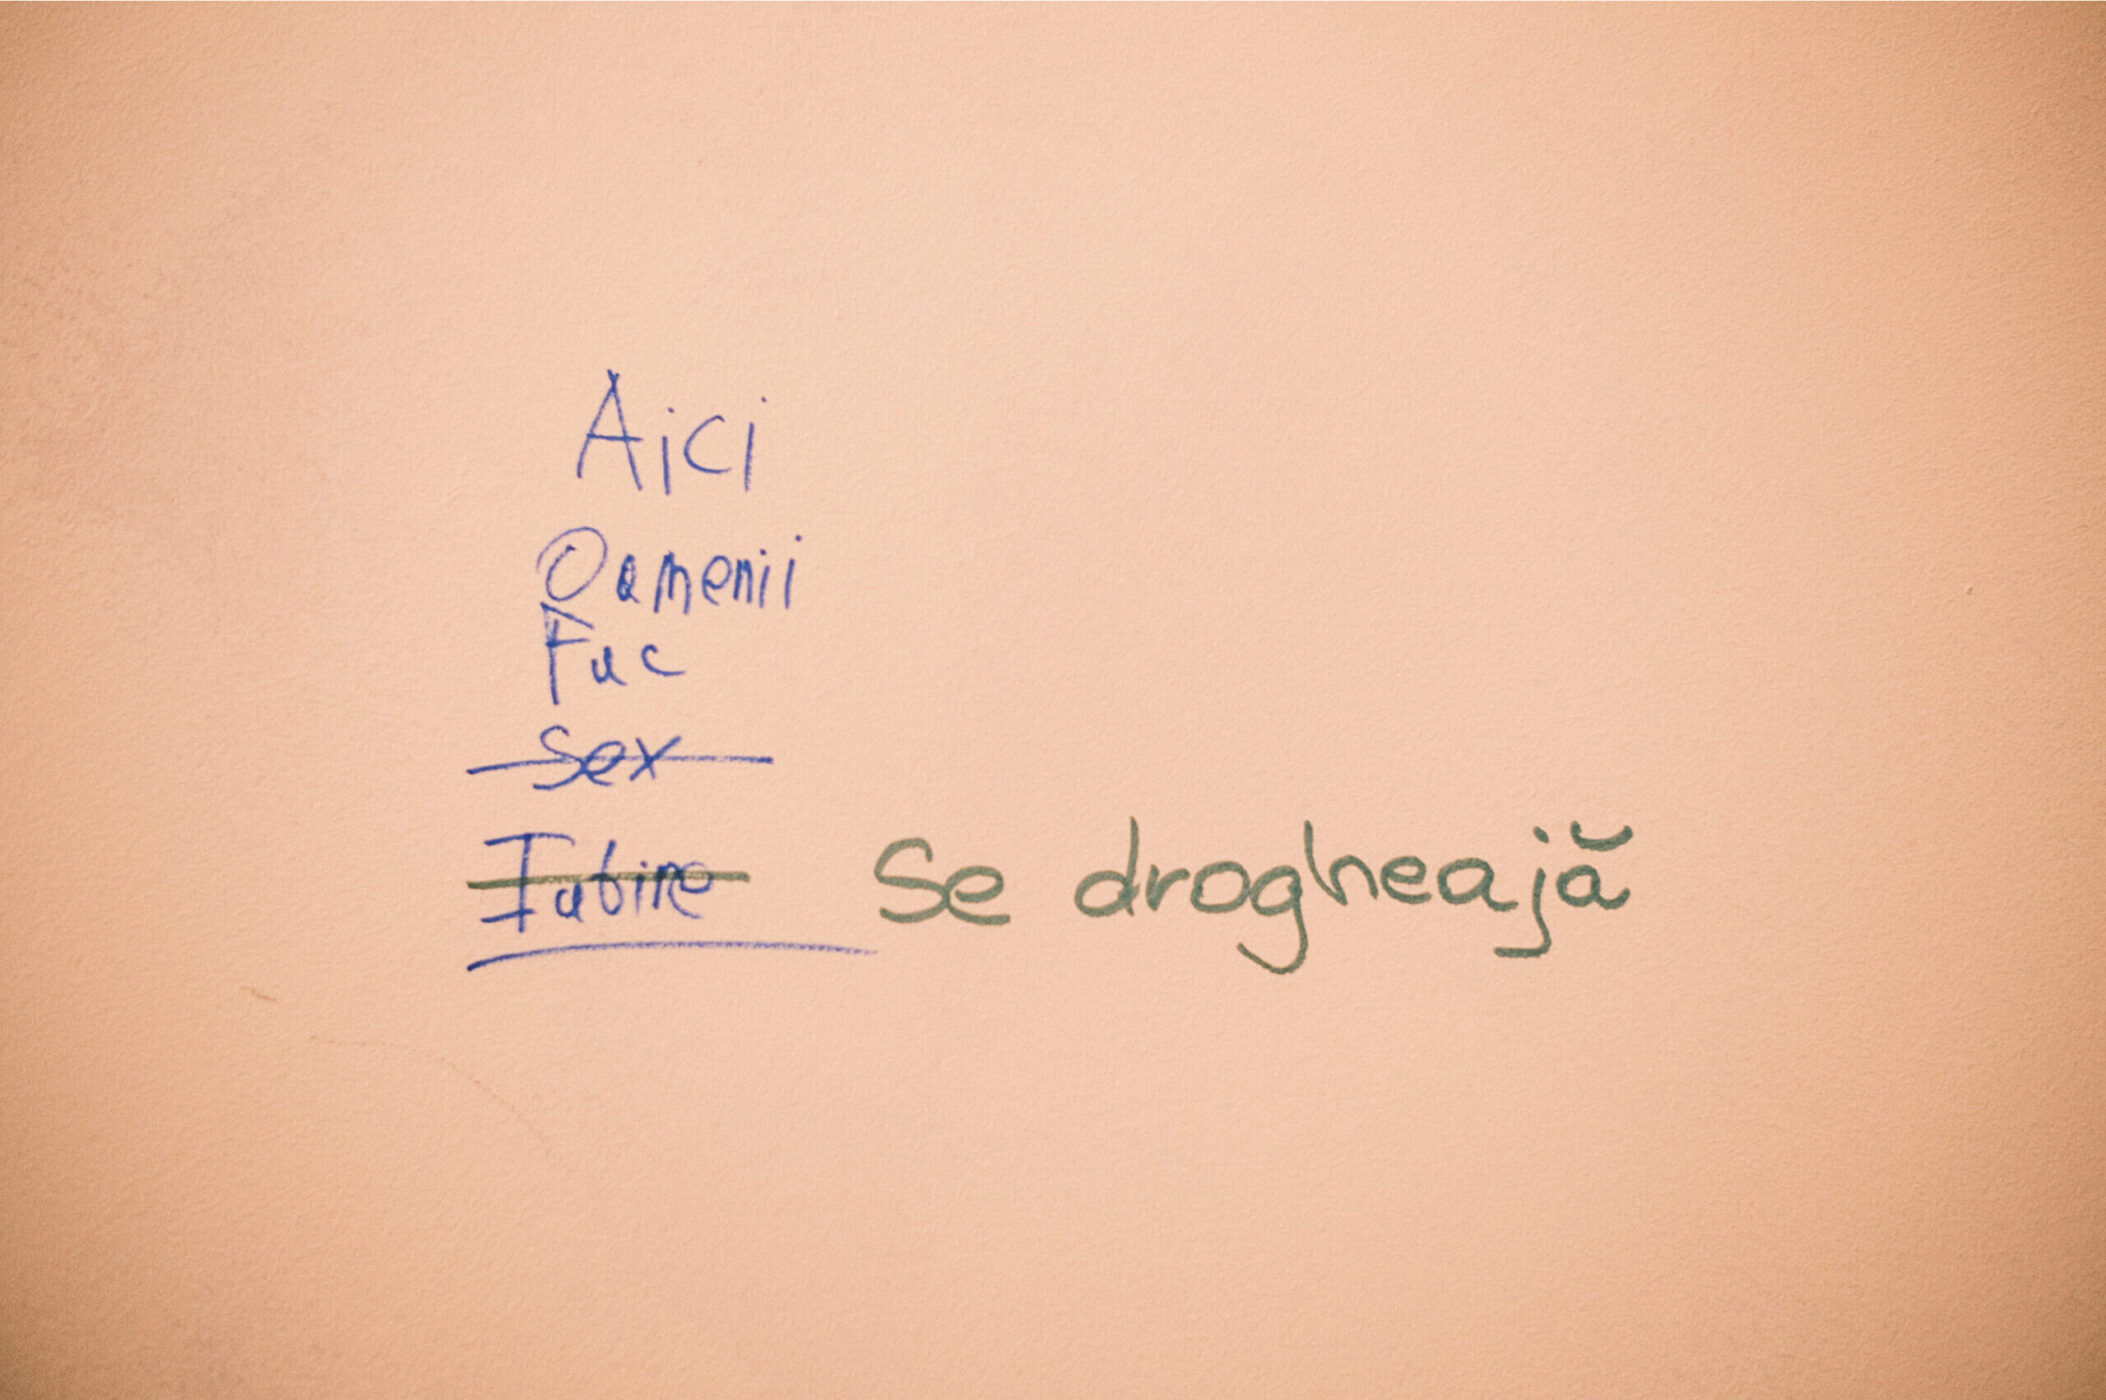 Aici
Oamenii
Fac
Sex
Iubire Se drogheajă